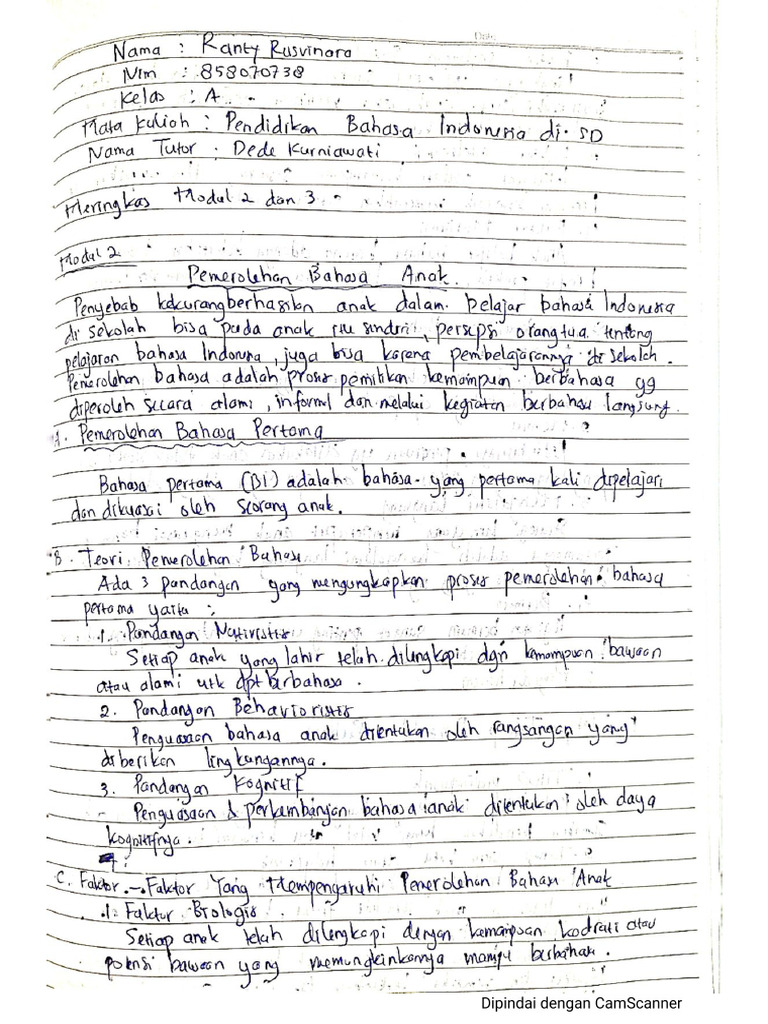 Nama : Ranty Rusvinara
Nim : 858070738
Kelas : A
Mata Kuliah : Pendidikan Bahasa Indonesia di SD
Nama Tutor : Dede Kurniawati
Meringkas Modul 2 dan 3
Modul 2
Pemerolehan Bahasa Anak
Penyebab kekurangberhasilan anak dalam belajar bahasa Indonesia
di sekolah bisa pada anak itu sindiri, persepsi orangtua tentang
pelajaran bahasa Indonesia, juga bisa karena pembelajarannya di sekolah.
Pemerolehan bahasa adalah proses pemilikan kemampuan berbahasa yg
diperoleh secara alami, informl dan melalui kegiatan berbahasa langsung.
A. Pemerolehan Bahasa Pertama
Bahasa pertama (B1) adalah bahasa yang pertama kali dipelajari
dan dikuasai oleh seorang anak.
B. Teori Pemerolehan Bahasa
Ada 3 pandangan yang mengungkapkan proses pemerolehan bahasa
pertama yaitu :
1. Pandangan Nativistis
Setiap anak yang lahir telah dilengkapi dgn kemampuan bawaan
atau alami utk dpt berbahasa.
2. Pandangan Behavioristis
Penguasaan bahasa anak ditentukan oleh rangsangan yang
diberikan lingkungannya.
3. Pandangan Kognitif
Penguasaan & perkembangan bahasa anak ditentukan oleh daya
kognitifnya.
C. Faktor - Faktor Yang Mempengaruhi Pemerolehan Bahasa Anak
1. Faktor Biologis
Setiap anak telah dilengkapi dengan kemampuan kodrati atau
potensi bawaan yang memungkinkannya mampu berbahasa.
Dipindai dengan CamScanner